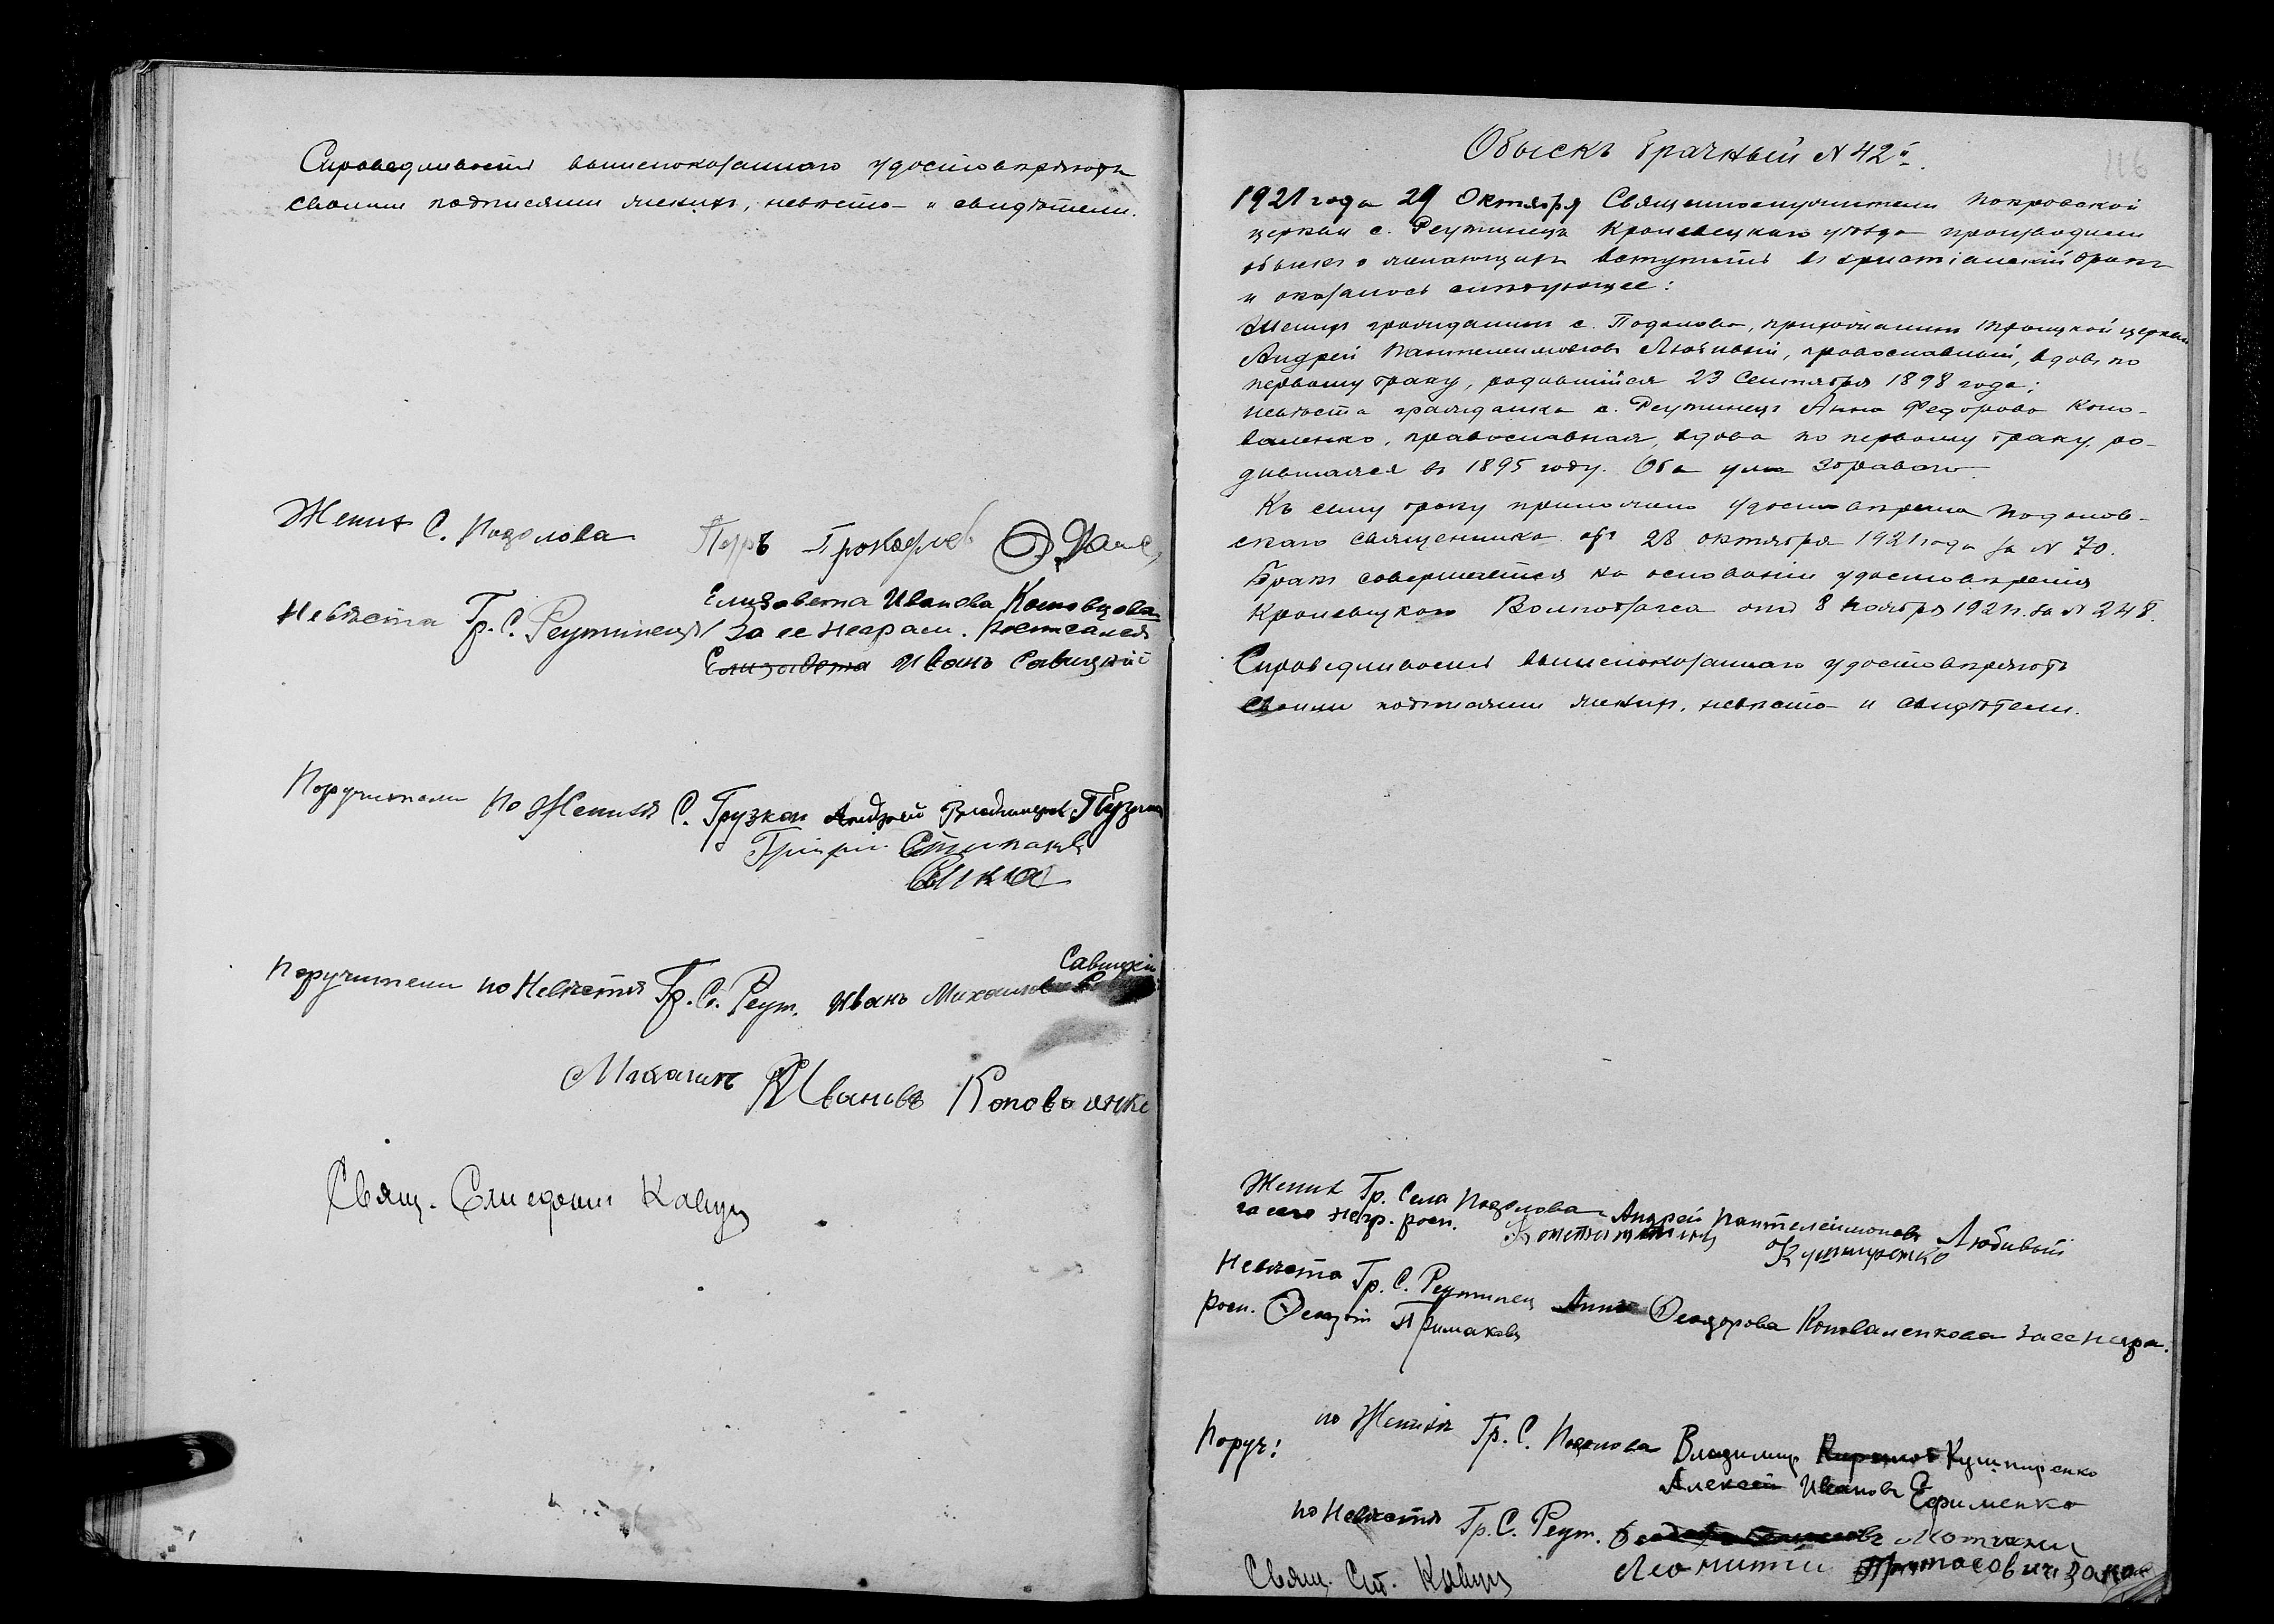 Справедливость вышепоказаннаго удостовѣряютъ
своими подписями женихъ, невѣста и свидѣтели.
Женихъ С. Подолова Петръ Прокофіев
Невѣста Гр. С. Реутинецъ Елизавета Иванова
за ее неграм. росписался
Елизавета Иванъ Савицкій
Поручители по Женихѣ С. Грузкои Андрей
Григрій
Поручители по Невѣстѣ Гр. С. Реут. Иванъ Михаиловъ Савицкій
Михаилъ Ивановъ Коноваленко
Свящ. Кавун
116
Обыскъ брачный N 42й
1921 года 29 Октября Священнослужители Покровской
церкви с. Реутинецъ Кролевецкаго уѣзда производили
обыскъ о желающихъ вступить въ христіанскій бракъ
и оказалось слѣдующее:
Женихъ гражданинъ с. Подолова, прихожанинъ Троицкой церкви
Андрей Пантелеимоновъ Любивый, православный, вдовъ по
первому браку, родившійся 23 Сентября 1898 года;
невѣста гражданка с. Реутинецъ Анна Федорова Коно-
валенко, православная, вдова по первому браку, ро-
дившаяся въ 1895 году. Оба ума здраваго
Къ сему браку приложено удостовѣреніе Подолов-
скаго священника отъ 28 октября 1921 года за N 70.
Бракъ совершается на основаніи удостовѣренія
Кролевецкаго Волиотзагса отъ 8 ноября 1921 г. за N 248.
Справедливость вышепоказаннаго удостовѣряютъ
своими подписями женихъ, невѣста и свидѣтели.
Женихъ Гр. Села Подолова Андрей Пантелеимоновъ Любивый
за его негр. росп. Кушниренко
Невѣста Гр. С. Реутинец Анна Феодорова Коноваленкова за ее негра.
росп. Примаковъ
Поруч: по Женихѣ Гр. С. Подолова Владимир Кушниренко
Алексей Ивановъ Ефименко
по Невѣстѣ Гр. С. Реут.
Свящ. Кавун